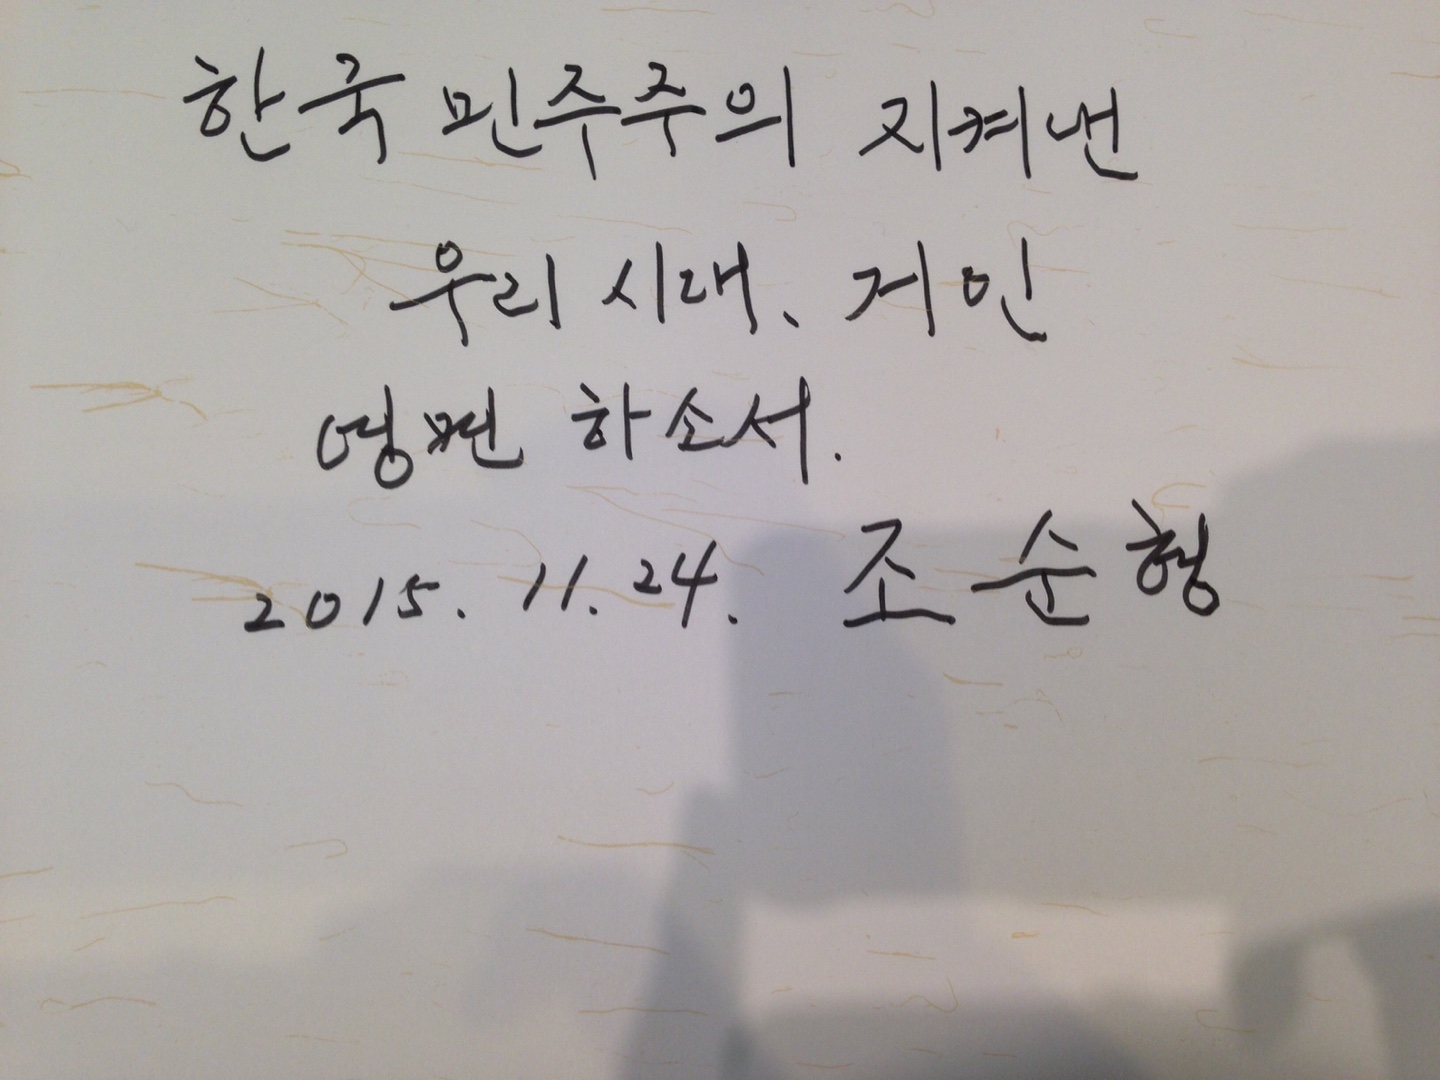 한국 민주주의 지켜낸
우리 시대、거인
영면 하소서.
2015. 11. 24. 조순형